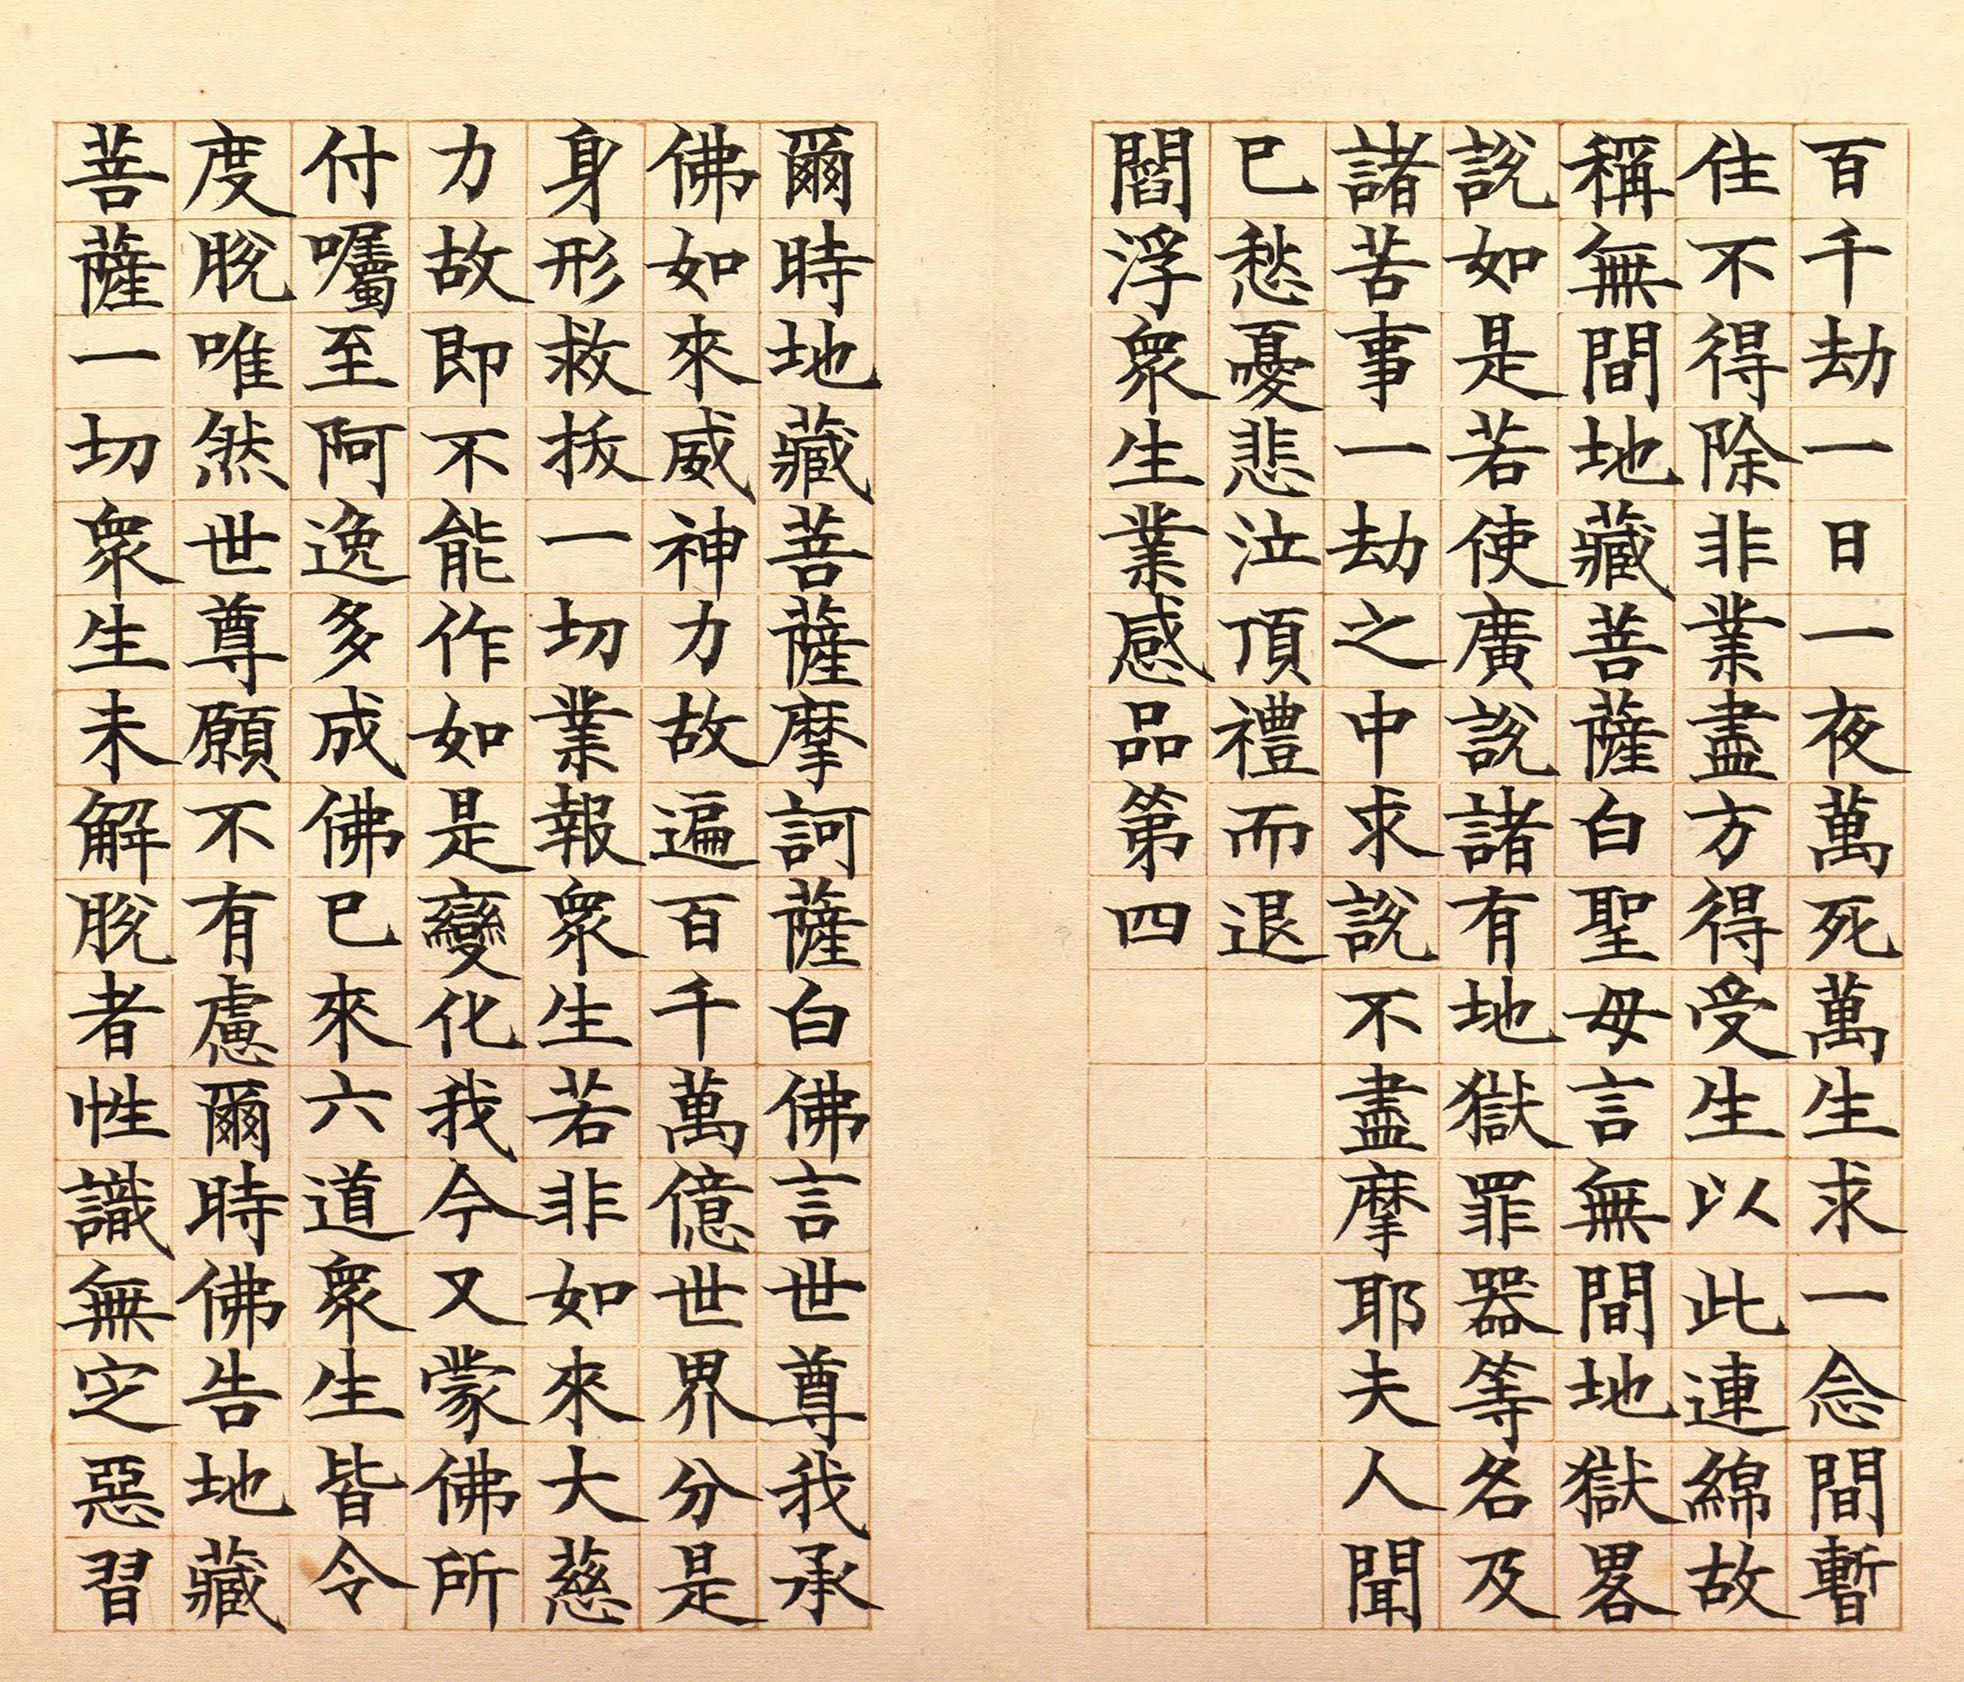 百千劫一日一夜萬死萬生求一念間暫
住不得除非業盡方得受生以此連綿故
稱無間地藏菩薩白聖母言無間地獄畧
說如是若使廣說諸有地獄罪器等名及
諸苦事一劫之中求說不盡摩耶夫人聞
已愁憂悲泣頂禮而退
閻浮眾生業感品第四
爾時地藏菩薩摩訶薩白佛言世尊我承
佛如來威神力故遍百千萬億世界分是
身形救拔一切業報眾生若非如來大慈
力故即不能作如是變化我今又蒙佛所
付囑至阿逸多成佛已來六道眾生皆令
度脫唯然世尊願不有慮爾時佛告地藏
菩薩一切眾生未解脫者性識無定惡習